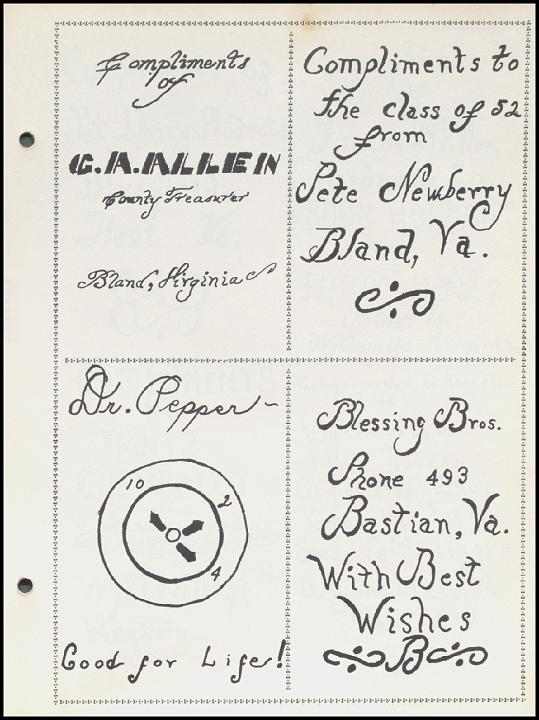 Compliments
of
G.A. ALLEN
County Treasurer
Bland, Virginia
Compliments to
the class of 52
from
Pete Newberry
Bland, Va.
Dr. Pepper -
10
2
4
Good for Life!
Blessing Bros.
Phone 493
Bastian, Va.
With Best
Wishes
B